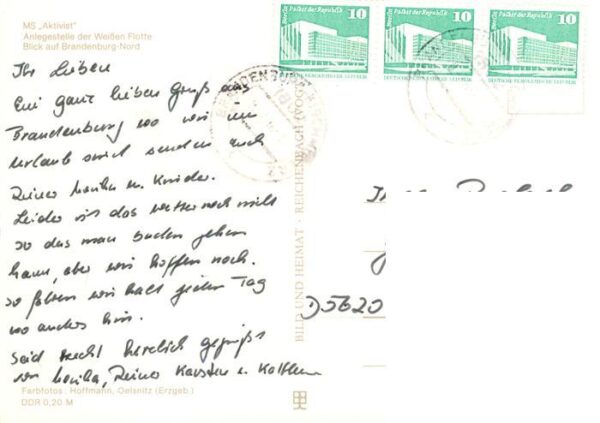 MS „Aktivist"
Anlegestelle der Weißen Flotte
Blick auf Brandenburg-Nord
Ihr Lieben
Ein ganz lieben Gruß aus
Brandenburg wo wir im
Urlaub sind senden euch
Reiner Monika u. Kinder.
Leider ist das Wetter noch nicht
so das man baden gehen
kann, aber wir hoffen noch.
so fahren wir halt jeden Tag
wo anders hin.
Seid recht herzlich gegrüßt
von Monika, Reiner Karsten u.
Farbfotos: Hoffmann, Oelsnitz (Erzgeb.)
DDR 0,20 M
BILD UND HEIMAT · REICHENBACH (VOGTL
Berlin Palast der Republik 10
Berlin Palast der Republik 10
Berlin Palast der Republik 10
DEUTSCHE DEMOKRATISCHE REPUBLIK
BRANDENBURG
D5620